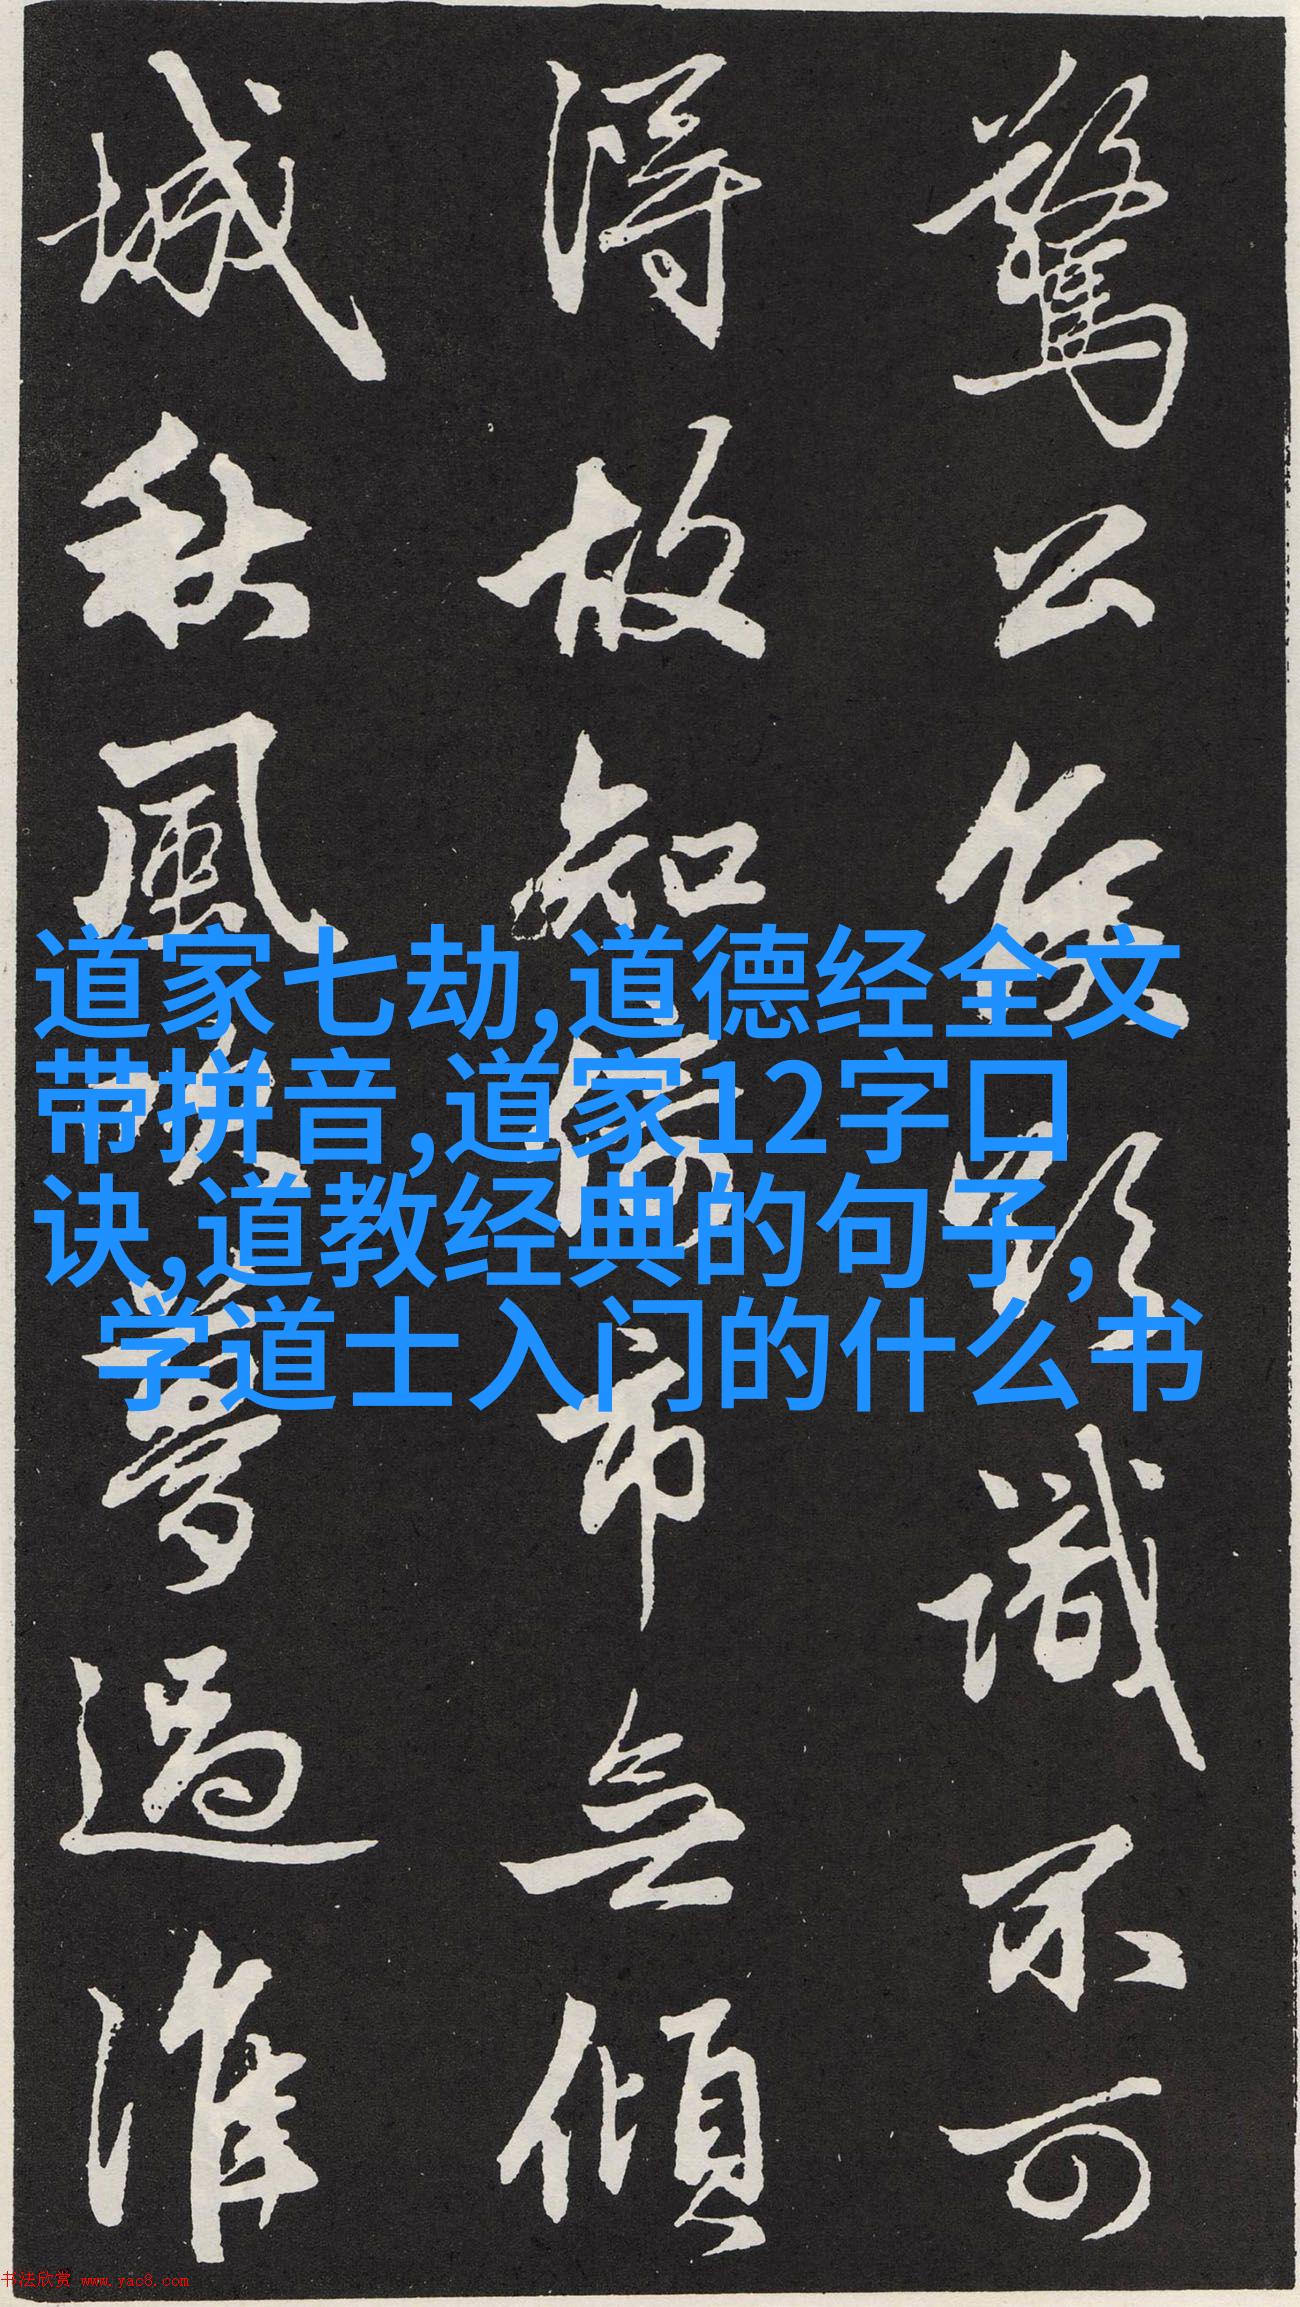 驚公侯欲識不可
得故知倚市無傾
城秋風吹夢過淮
道家七劫,道德经全文
带拼音,道家12字口
诀,道教经典的句子,
学道士入门的什么书
书法欣赏 www.yac8.com